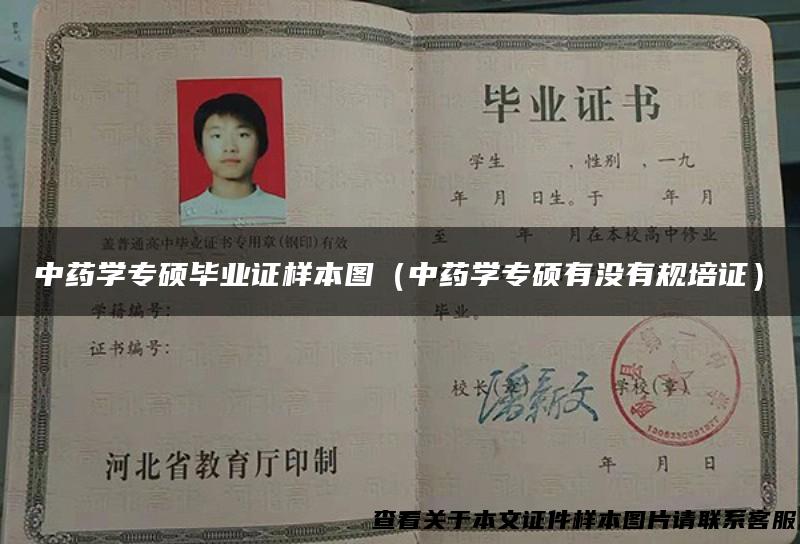 毕业证书
学生　　，性别　，一九
年　月　日生。于　　年　月
至　　年　月在本校高中修业
盖普通高中毕业证书专用章(钢印)有效
中药学专硕毕业证样本图（中药学专硕有没有规培证）
学籍编号：
毕业。
证书编号：
校长(章)
潘新文
学校(章)
河北省教育厅印制
年　月　日
查看关于本文证件样本图片请联系客服